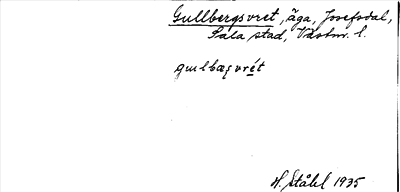 Gullbergsvret, äga, Josefsdal,
Sala stad, Västm. l.
gɯlbæʂvrét
H. Ståhl 1935